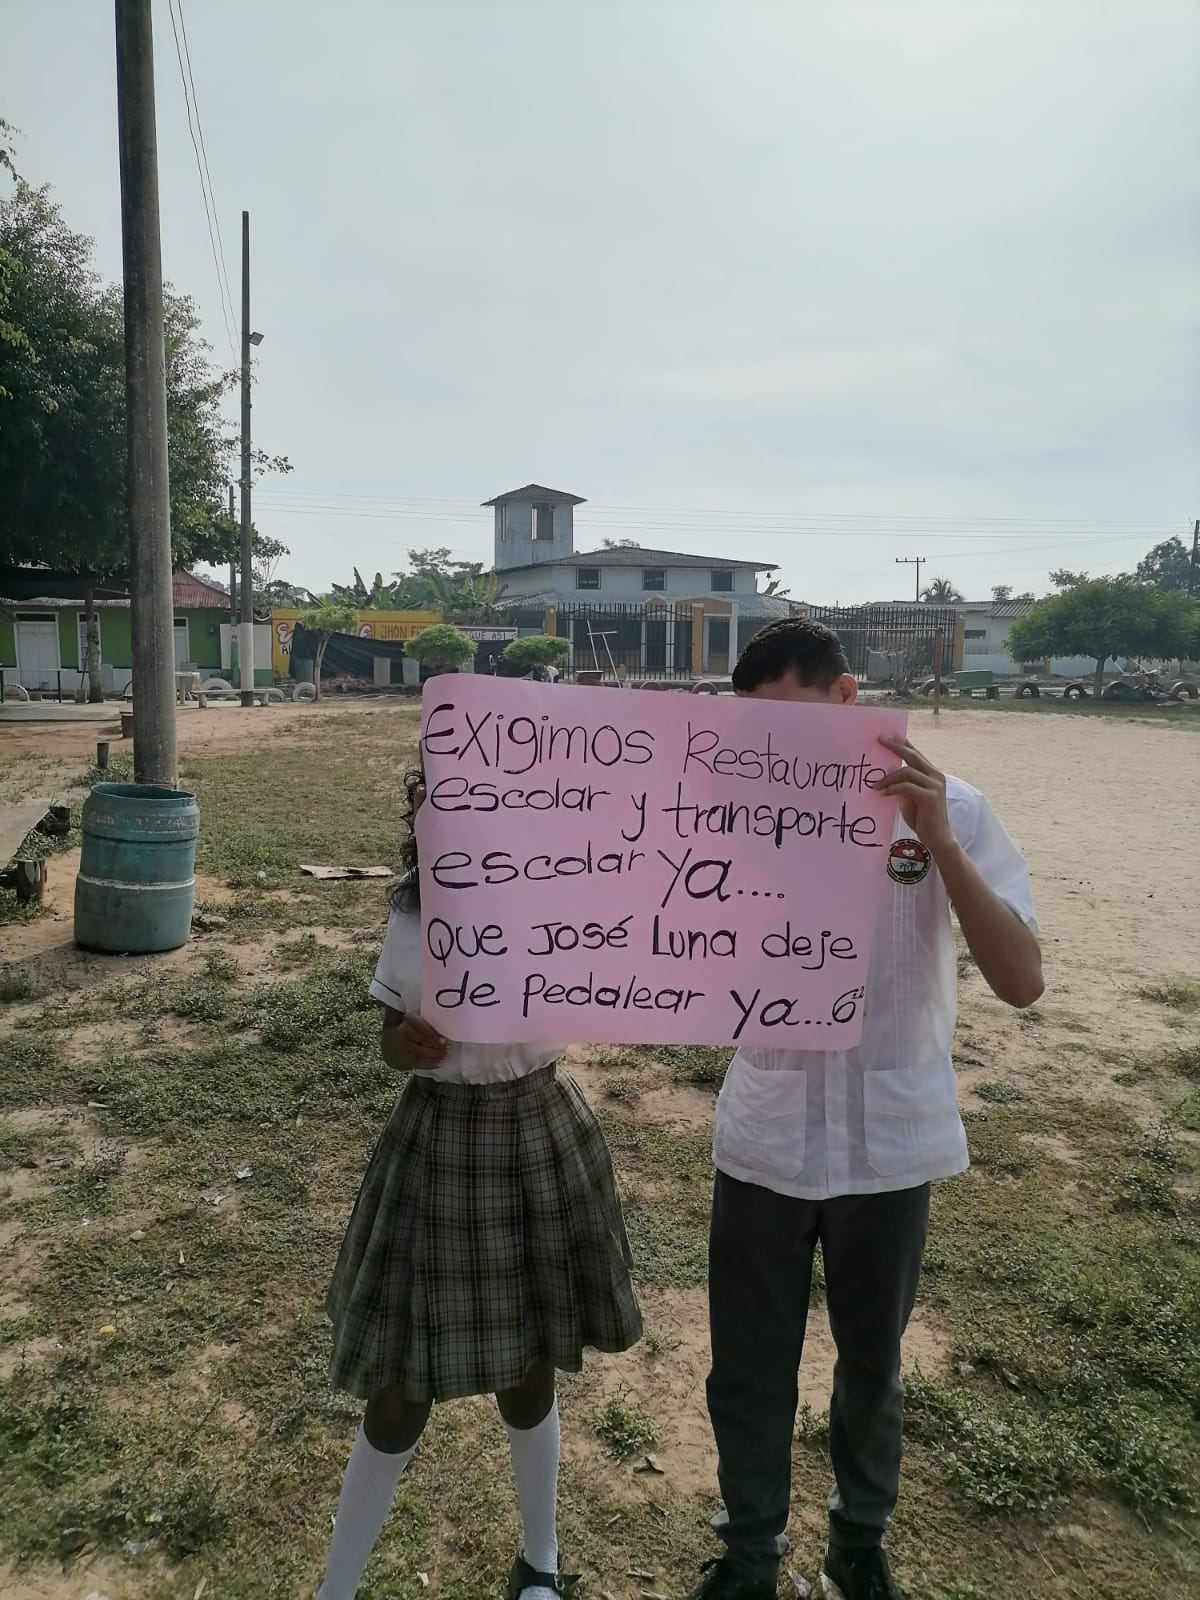 JHON F
QUE ASI
Exigimos Restaurante
escolar y transporte
escolar ya....
Que José Luna deje
de Pedalear ya...6°²